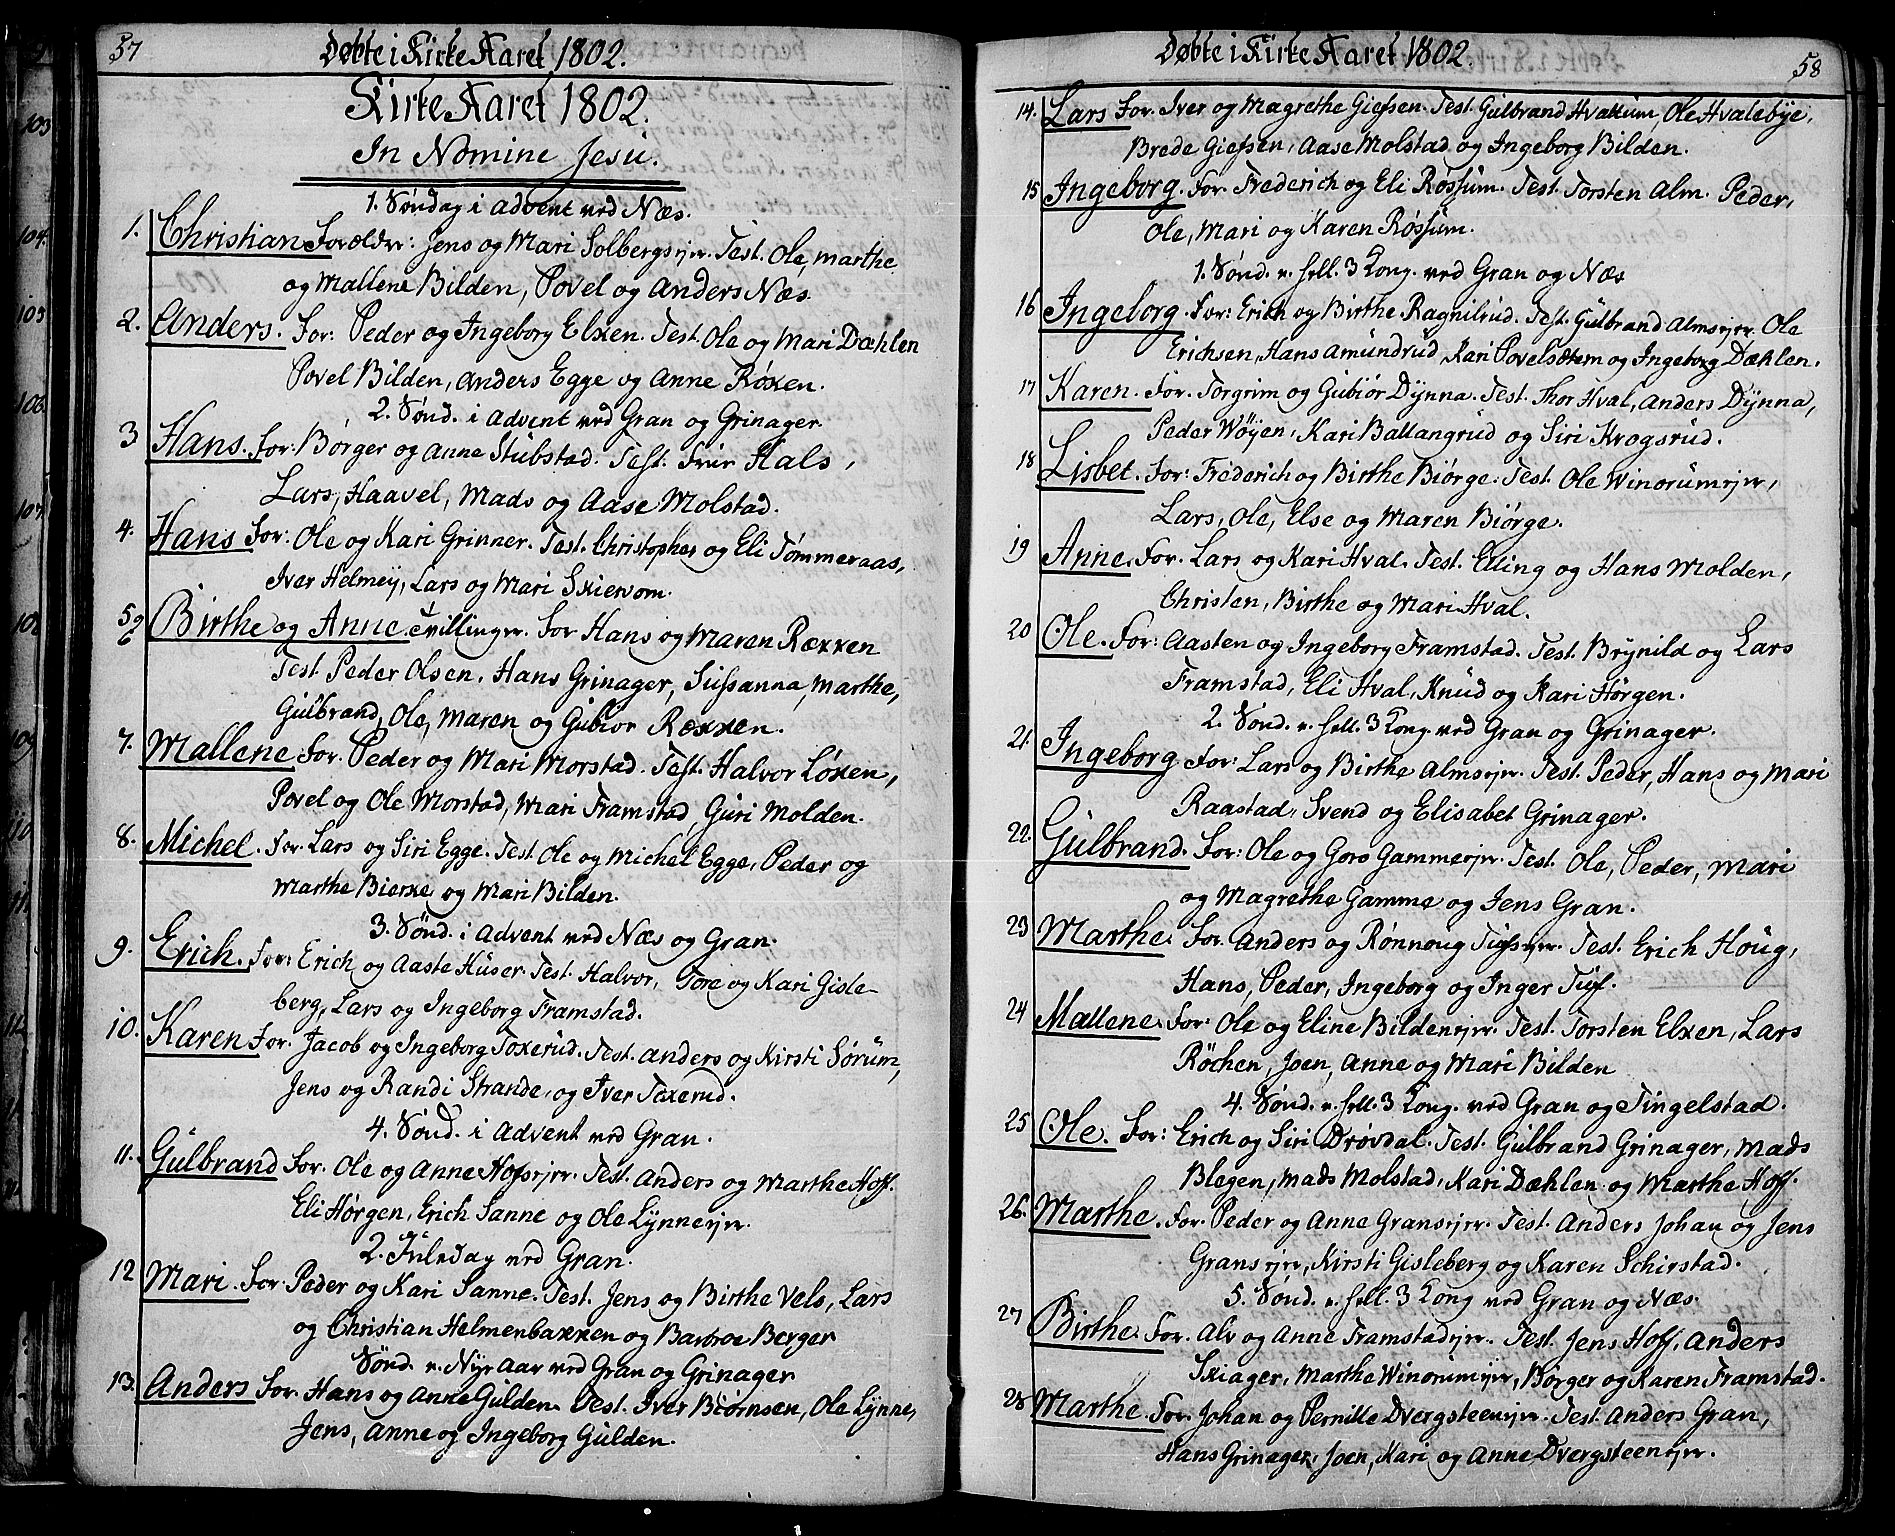 57
Døbte i Kirke Aaret 1802.
Kirke Aaret 1802.
In Nomine Jesu.
1. Søndag i Advent ved Næs.
1. Christian Forældre: Jens og Mari Solbergsejer. Test. Ole, Marthe
og Mallene Bilden, Povel og Anders Næs.
2. Anders. For: Peder og Ingeborg Elken. Test. Ole og Mari Dæhlen
Povel Bilden, Anders Egge og Anne Røken.
2. Sønd. i Advent ved Gran og Grinager.
3 Hans. For: Børger og Anne Stubstad. Test. Iver Hals,
Lars, Haavel, Mads og Aase Molstad.
4. Hans For: Ole og Kari Grinner. Test. Christopher og Eli Tømmeraas,
Iver Helmey, Lars og Mari Skiervom.
5 og 6 Birthe og Anne tvillinger. For Hans og Maren Rækken
Test. Peder Olsen, Hans Grinager, Sussanna, Marthe,
Gulbrand, Ole, Maren og Gubiør Rækken.
7. Mallene For. Peder og Mari Morstad. Test. Halvor Løken,
Povel og Ole Morstad, Mari Framstad, Guri Molden.
8. Michel. For. Lars og Siri Egge. Test. Ole og Michel Egge, Peder og
Marthe Bierke og Mari Bilden.
3. Sønd. i Advent ved Næs og Gran.
9. Erich. For: Erich og Aaste Huser. Test. Halvor, Tore og Kari Gisle-
berg, Lars og Ingeborg Framstad.
10. Karen For. Jacob og Ingeborg Toxerud. Test. Anders og Kirsti Sørum,
Jens og Randi Strande, og Iver Toxerud.
4. Sønd. i Advent ved Gran.
11. Gulbrand For. Ole og Anne Hofsejer. Test. Anders og Marthe Hoff.
Eli Hørgen, Erich Sanne og Ole Lynneejer.
2. Juledag ved Gran.
12 Mari. For. Peder og Kari Sanne. Test. Jens og Birthe Vels, Lars
og Christian Helmenbakken og Barbroe Berger
Sønd. e. Nyt aar ved Gran og Grinager
13. Anders For. Hans og Anne Gulden. Test. Iver Biørnsen, Ole Lynne,
Jens, Anne og Ingeborg Gulden.
Døbte i Kirke Aaret 1802.
58
14. Lars For. Iver og Magrethe Giefsen. Test. Gulbrand Hvattum, Ole Hvalebye,
Brede Giefsen, Aase Molstad og Ingeborg Bilden.
15 Ingeborg. For. Frederich og Eli Røssum. Test. Torsten Alm. Peder,
Ole, Mari og Karen Røssum.
1. Sønd. e. hell. 3 Kong. ved Gran og Næs
16 Ingeborg. For: Erich og Birthe Ragnilrud. Test. Gulbrand Almsejer. Ole
Erichsen, Hans Amundrud, Kari Povelsætem og Ingeborg Dæhlen.
17 Karen. For. Torgrim og Gubiør Dynna. Test. Thor Hval, Anders Dynna,
Peder Wøyen, Kari Ballangrud og Siri Krogsrud.
18 Lisbet. For: Frederich og Birthe Biørge. Test. Ole Winorumejer,
Lars, Ole, Else og Maren Biørge.
19 Anne. For. Lars og Kari Hval. Test. Elling og Hans Molden,
Christen, Birthe og Mari Hval.
20 Ole. For: Aasten og Ingeborg Framstad. Test. Brynild og Lars
Framstad, Eli Hval, Knud og Kari Hørgen.
2. Sønd. e. hell. 3 Kong. ved Gran og Grinager.
21. Ingeborg For: Lars og Birthe Almsejer. Test. Peder, Hans og Mari
Raastad, Svend og Elisabet Grinager.
22. Gulbrand. For: Ole og Goro Gammeejer. Test. Ole, Peder, Mari
og Magrethe Gamme og Jens Gran.
23 Marthe. For. Anders og Rønnoug Tufsejer. Test. Erich Houg,
Hans, Peder, Ingeborg og Inger Tuf.
24 Mallene. For: Ole og Eline Bildenejer. Test. Torsten Elken, Lars
Røchen, Joen, Anne og Mari Bilden
4. Sønd. e. hell. 3 Kong. ved Gran og Tingelstad.
25 Ole. For: Erich og Siri Drøvdal. Test. Gulbrand Grinager, Mads
Blegen, Mads Molstad, Kari Dæhlen og Marthe Hoff.
26. Marthe. For. Peder og Anne Gransejer. Test. Anders Johan og Jens
Gransejer, Kirsti Gisleberg og Karen Schirstad.
5. Sønd. e. hell. 3 Kong ved Gran og Næs.
27 Birthe. For. Alv og Anne Framstadejer. Test. Jens Hoff, Anders
Skiager, Marthe Winorumejer, Børger og Karen Framstad.
28 Marthe. For. Johan og Pernille Dvergsteenejer. Test. Anders Gran,
Hans Grinager, Joen, Kari og Anne Dvergsteenejer.
103
104.
105
106.
107.
108
109
110.